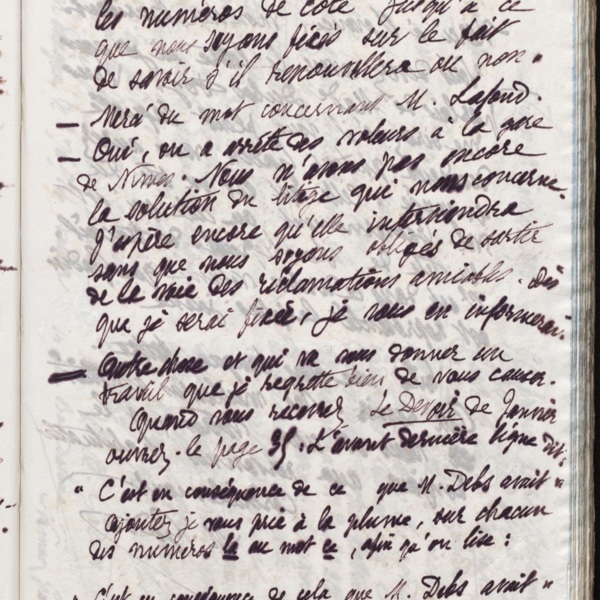 les numéros de côté jusqu'à ce
que nous soyons fixés sur le fait
de savoir s'il renouvellera ou non.
— Merci du mot concernant M. Lafond.
— Oui, on a arrêté des voleurs à la gare
de Nîmes. Nous n'avons pas encore
la solution du litige qui nous concerne.
J'espère encore qu'elle interviendra
sans que nous soyons obligés de sortir
de la voie des réclamations amiables. Dès
que je serai fixée, je vous en informerai.
— Autre chose et qui va vous donner un
travail que je regrette bien de vous causer.
Quand vous recevrez Le Devoir de Janvier
ouvrez-le page 35. L'avant dernière ligne dit:
" C'est en conséquence de ce que M. Debs avait "
ajoutez, je vous prie à la plume, sur chacun
des numéros la au mot ce, afin qu'on lise :
" C'est en conséquence de cela que M. Debs avait "